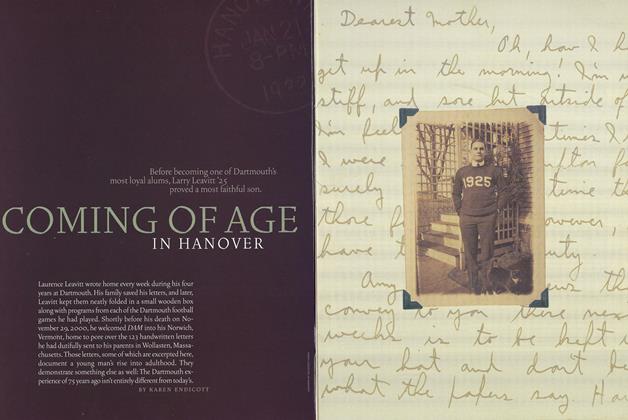 HANO
JAN 21
8-PM
Before becoming one of Dartmouth's
most loyal alums, Larry Leavitt '25
proved a most faithful son.
COMING OF AGE
IN HANOVER
Laurence Leavitt wrote home every week during his four
years at Dartmouth. His family saved his letters, and later,
Leavitt kept them neatly folded in a small wooden box
along with programs from each of the Dartmouth football
games he had played. Shortly before his death on No-
vember 29, 2000, he welcomed DAM into his Norwich,
Vermont, home to pore over the 123 handwritten letters
he had dutifully sent to his parents in Wollaston, Massa-
chusetts. Those letters, some of which are excerpted here,
document a young man's rise into adulthood. They
demonstrate something else as well: The Dartmouth ex-
perience of 75 years ago isn't entirely different from today's.
BY KAREN ENDICOTT
Dearest Mother,
Oh, how I h
get up in the morning! I'm
stiff, and sore but outside of
I'm feel times I
I were
surely time th
those owever,
have t uty.
Any ws th
convey to you these nex
weeks is to be kept
your hat and don't be
what the papers say. Ha
1925